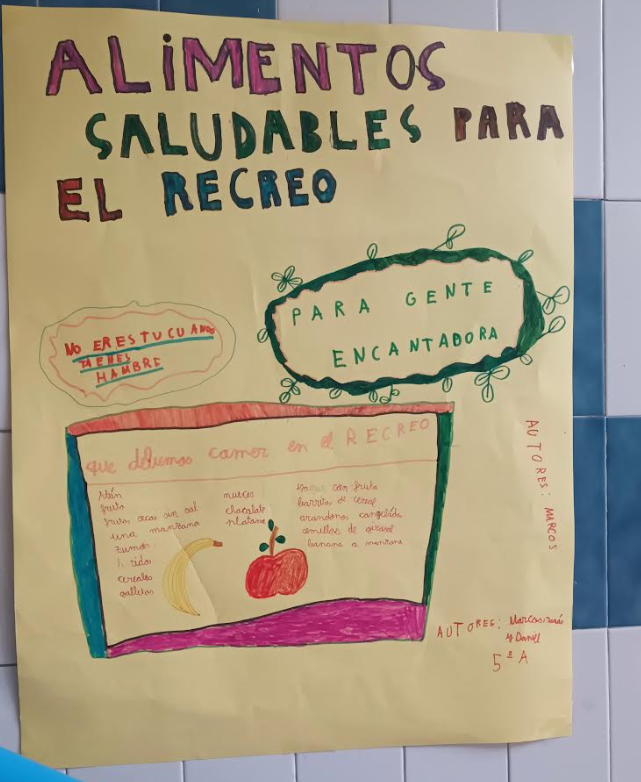 ALiMENTOS
SALUDABLES PARA
EL RECREO
PARA GENTE
ENCANTADORA
NO ERES TU CUANDO
TIENES
HAMBRE
que debemos comer en el RECREO
fruta
frutos secos sin sal
una manzana
zumos
cereales
galletas
nueces
chocolate
platano
con fruta
barrita de cereal
arandanos congelados
semillas de girasol
banana o manzana
AUTORES: MARCOS
AUTORES: Marcos
y Daniel
5º A